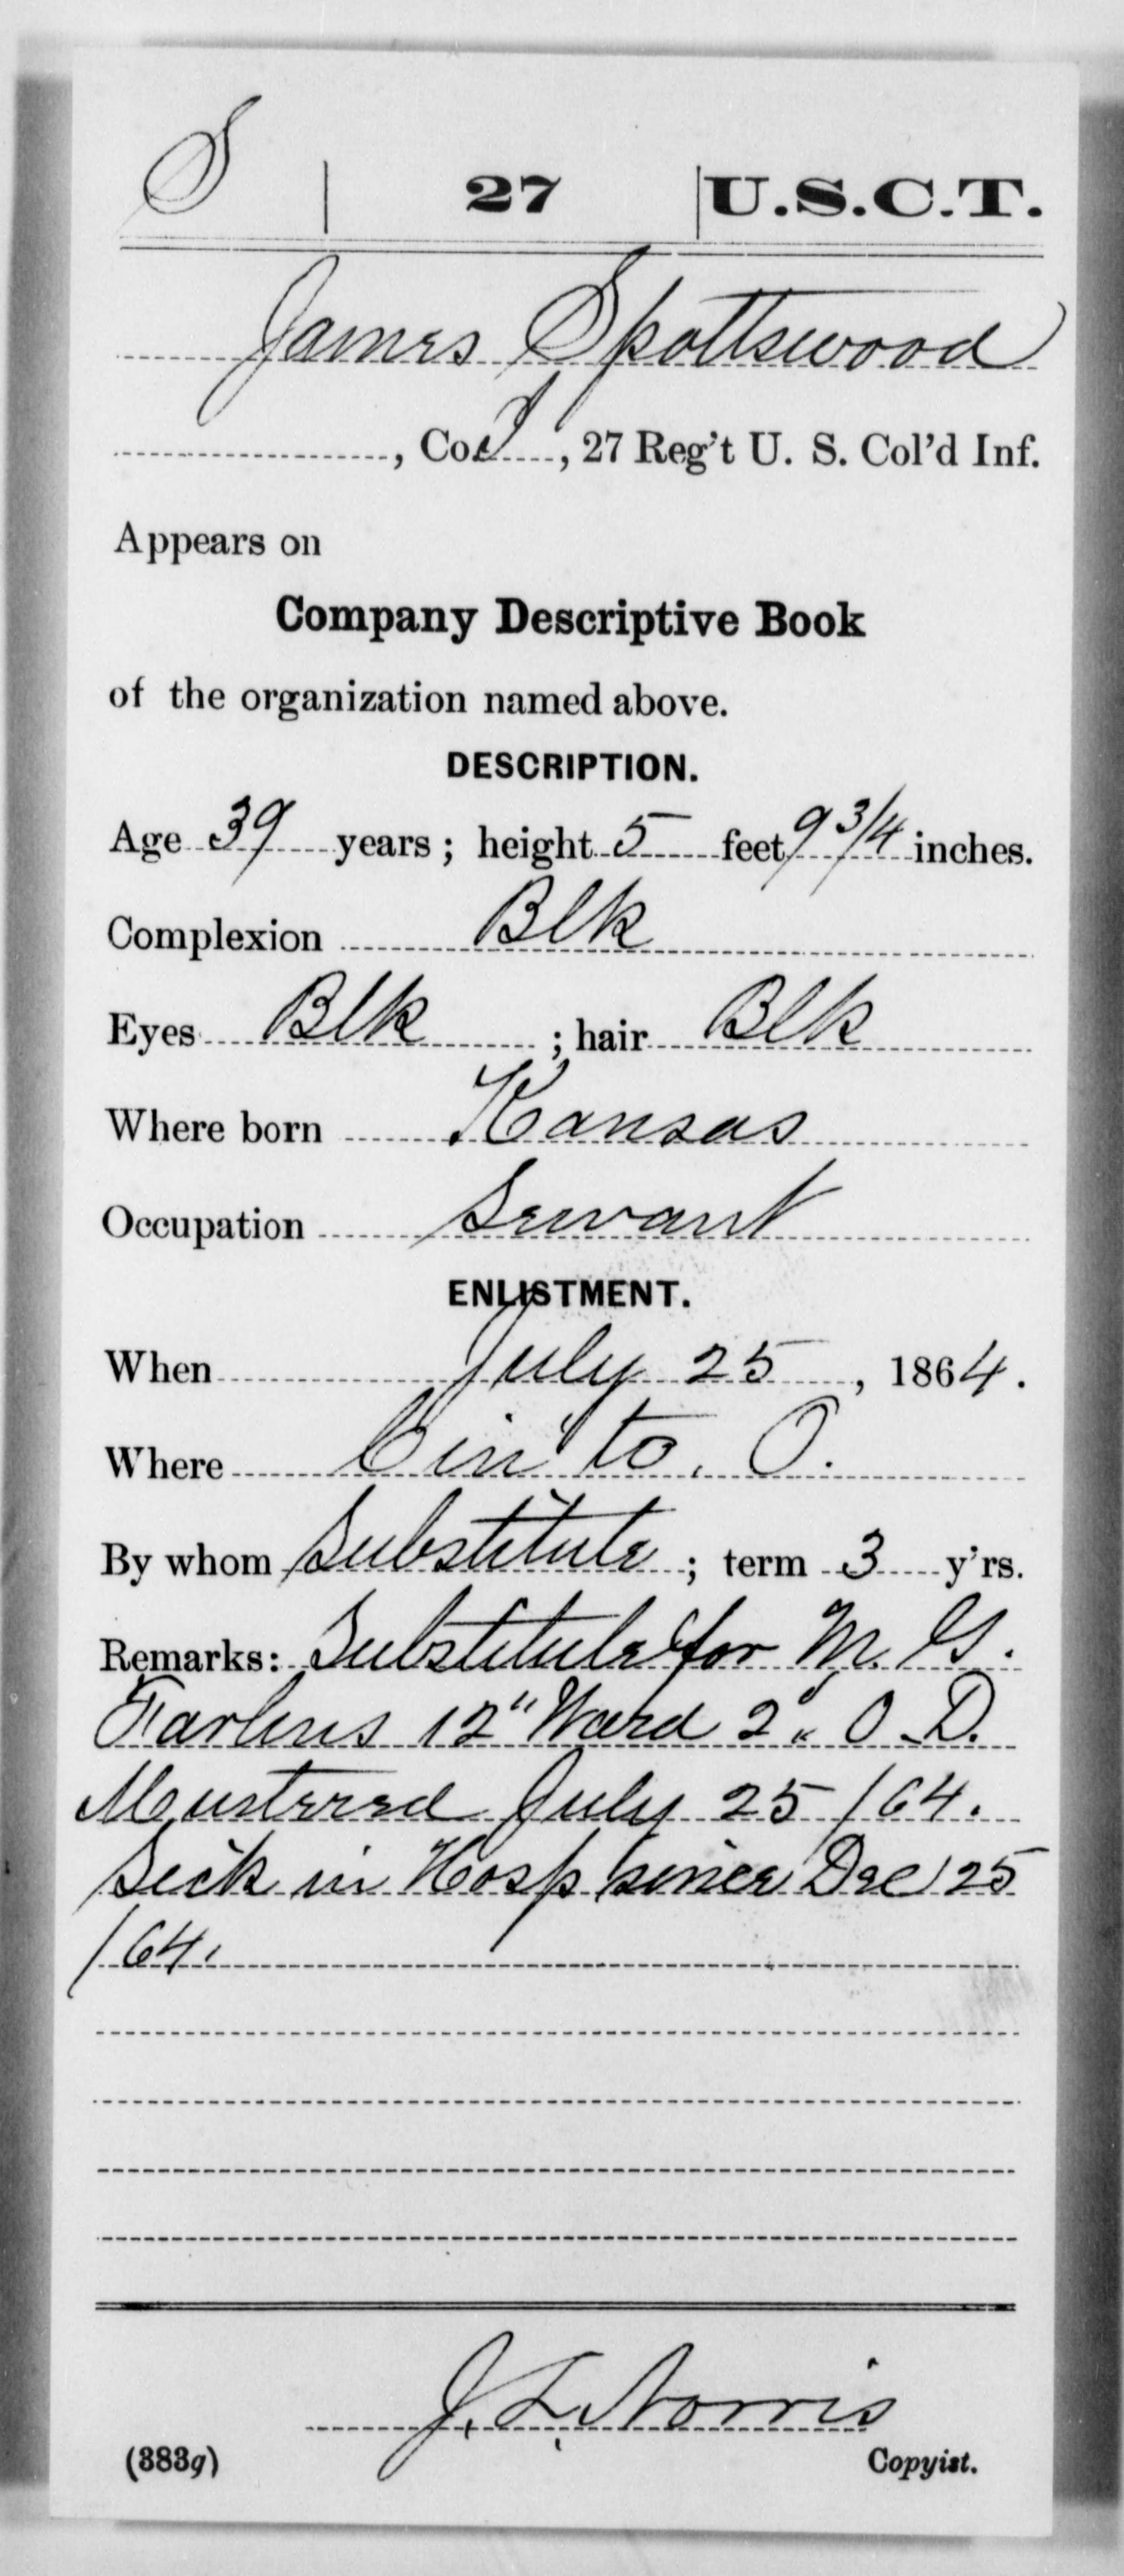 S | 27 | U.S.C.T.
James Spottswood
, Co. I, 27 Reg't U. S. Col'd Inf.
Appears on
Company Descriptive Book
of the organization named above.
DESCRIPTION.
Age 39 years; height 5 feet 9 3/4 inches.
Complexion Blk
Eyes Blk; hair Blk
Where born Kansas
Occupation Servant
ENLISTMENT.
When July 25, 1864.
Where Cin'to, O.
By whom Substitute; term 3 y'rs.
Remarks: Substitute for M. G.
12" Ward 2" O. D.
Mustered July 25/64.
Sick in Hosp since Dec 25
/64.
J. L. Norris
(383g) Copyist.